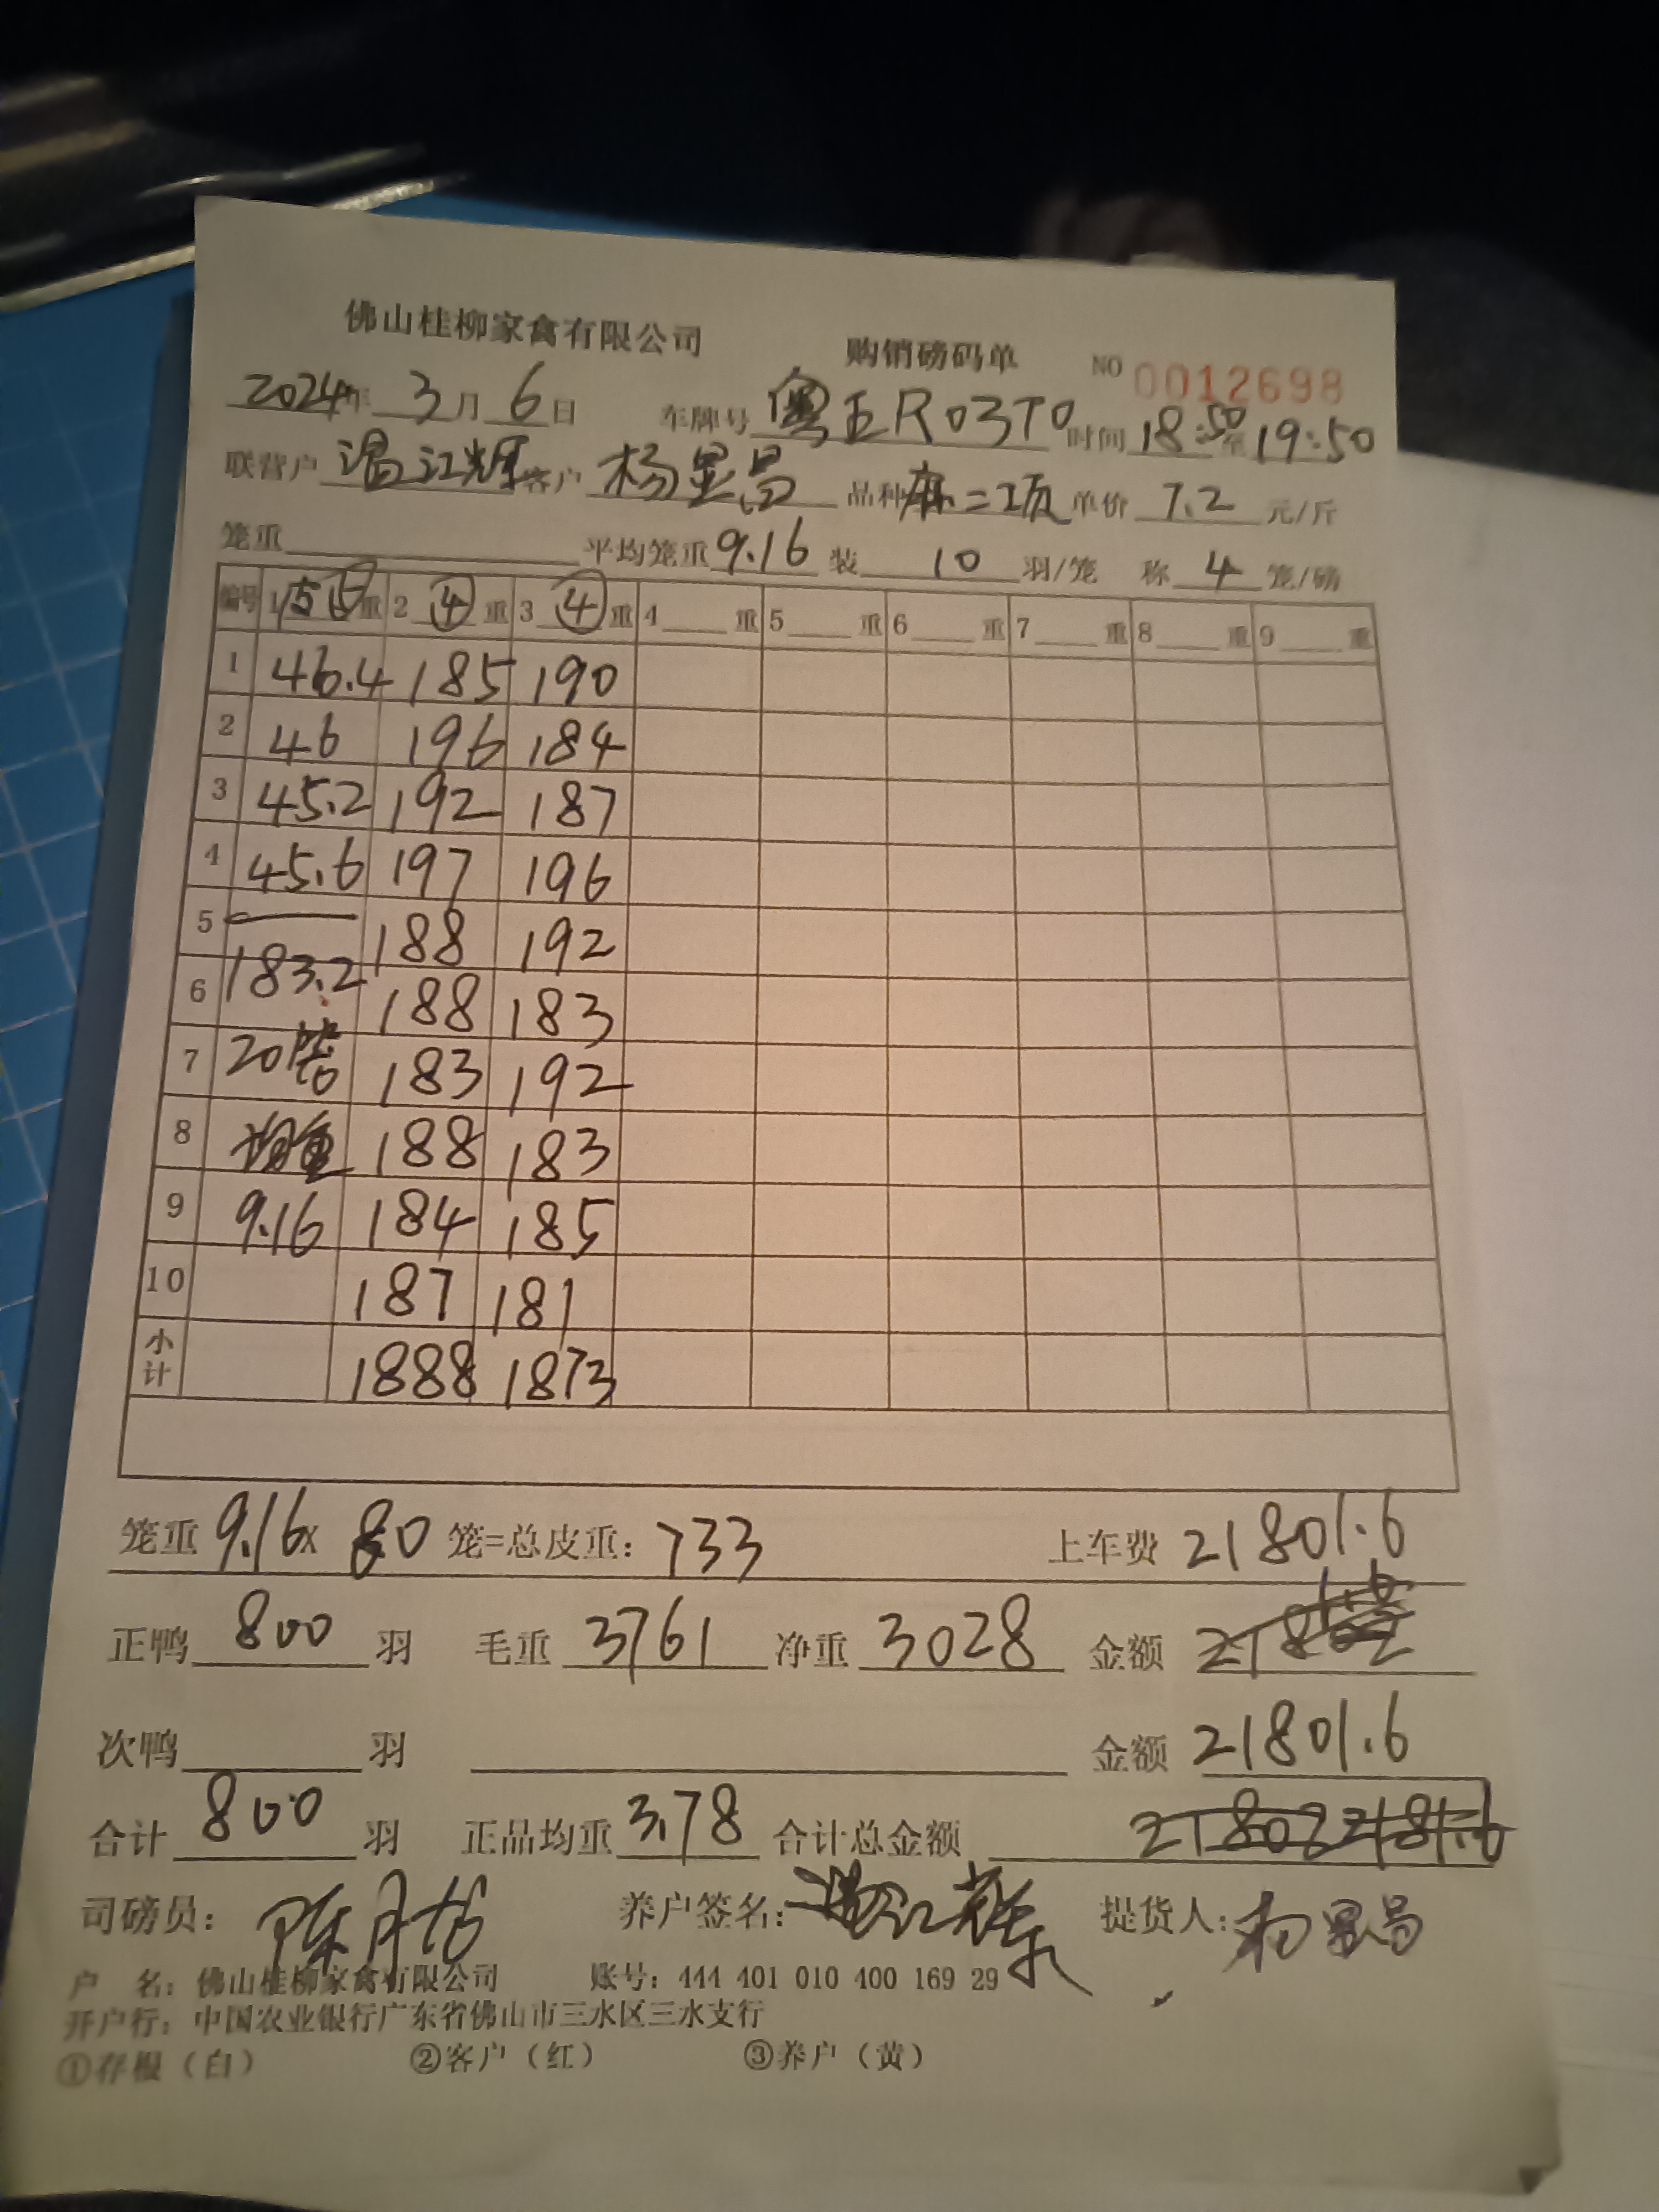 佛山桂柳家禽有限公司 购销磅码单 NO 0012698
2024年 3月 6日 车牌号 粤 R03T0 时间 18:50至19:50
联营户 温江辉 客户 杨显昌 品种 麻二项 单价 7.2 元/斤
笼重 平均笼重 9.16 装 10 羽/笼 称 4 笼/磅
编号 1 ⑤ 重 2 ④ 重 3 ④ 重 4 重 5 重 6 重 7 重 8 重 9 重
1 46.4 185 190
2 46 196 184
3 45.2 192 187
4 45.6 197 196
5 188 192
6 183.2 188 183
7 20笼 183 192
8 188 183
9 9.16 184 185
10 187 181
小计 1888 1873
笼重 9.16 x 80 笼=总皮重: 733 上车费 21801.6
正鸭 800 羽 毛重 3761 净重 3028 金额
次鸭 羽 金额 21801.6
合计 800 羽 正品均重 3.78 合计总金额
司磅员: 养户签名: 提货人: 杨显昌
户 名: 佛山桂柳家禽有限公司 账号: 444 401 010 400 169 29
开户行: 中国农业银行广东省佛山市三水区三水支行
①存根（白） ②客户（红） ③养户（黄）